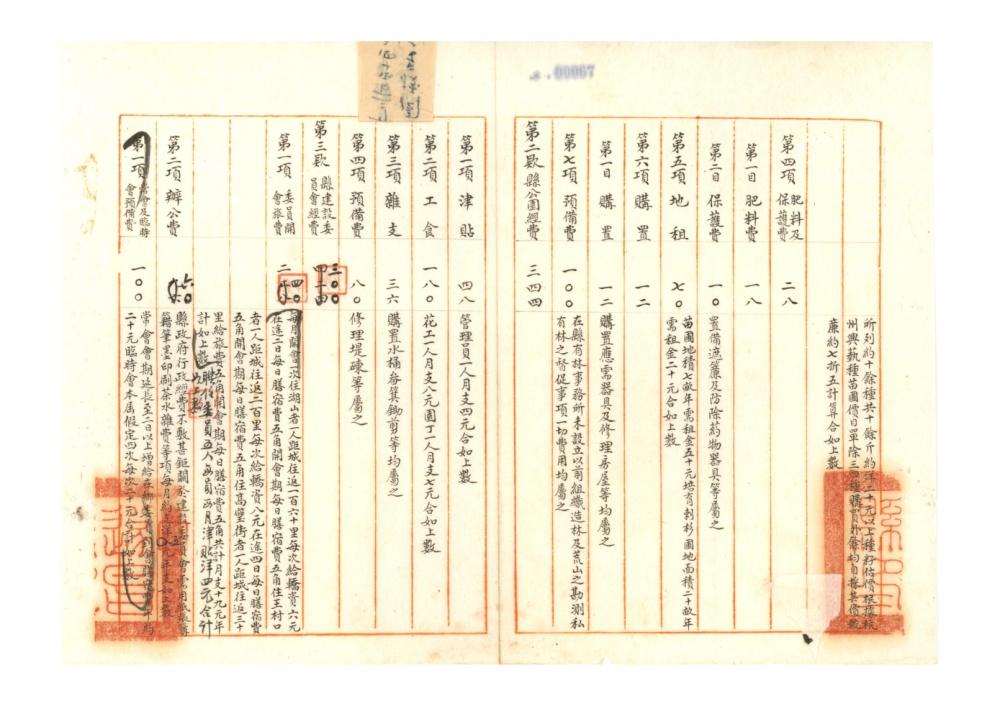 .00067
所列約十餘種共十餘斤約洋二十元以上種籽估價根據杭
州興執種苗園價目單除三四種購買外餘均自採其價
廉約七折五計算合如上數
第四項 肥料及保護費 二八
第一目 肥料費 一八
第二目 保護費 一〇 置備遮簾及防除葯物器具等屬之
第五項 地租 七〇 苗圃地積七畝年需租金五十元培育刺杉圃地面積二十畝年
需租金二十元合如上數
第六項 購置 一二
第一目 購置 一二 購置應需器具及修理房屋等均屬之
第七項 預備費 一〇〇 在縣有林事務所未設立以前組織造林及荒山之勘測私
有林之督促事項一切費用均屬之
第二欵 縣公園經費 三四四
第一項 津貼 四八 管理員一人月支四元合如上數
第二項 工食 一八〇 花工一人月支八元園丁一人月支七元合如上數
第三項 雜支 三六 購置水桶畚箕鋤剪等均屬之
第四項 預備費 八〇 修理堤磡等屬之
第三欵 縣建設委員會經費 三〇〇
第一項 委員開會旅費 二四〇 每月開會一次住湖山者一人距城往返一百六十里每次給轎資六元
在途二日每日膳宿費五角開會期每日膳宿費五角住王村口
者一人距城往返二百里每次給轎資八元在途四日每日膳宿費
五角開會期每日膳宿費五角住高壁街者一人距城往返三十
里給旅費五角開會期每日膳宿費五角共計月支十九元年
計如上數 聘任委員五人每員每月津貼洋四元合計
如上數
第二項 辦公費 六〇 縣政府行政經費不敷甚鉅關於建設委員會需用紙張簿
籍筆墨印刷茶水雜費等項每月約五元年支如上數
第一項 常會及臨時會預備費 一〇〇 常會會期延長至二日以上增給在鄉委員膳宿費年約
二十元臨時會本屬假定四次每次二十元合計如上數